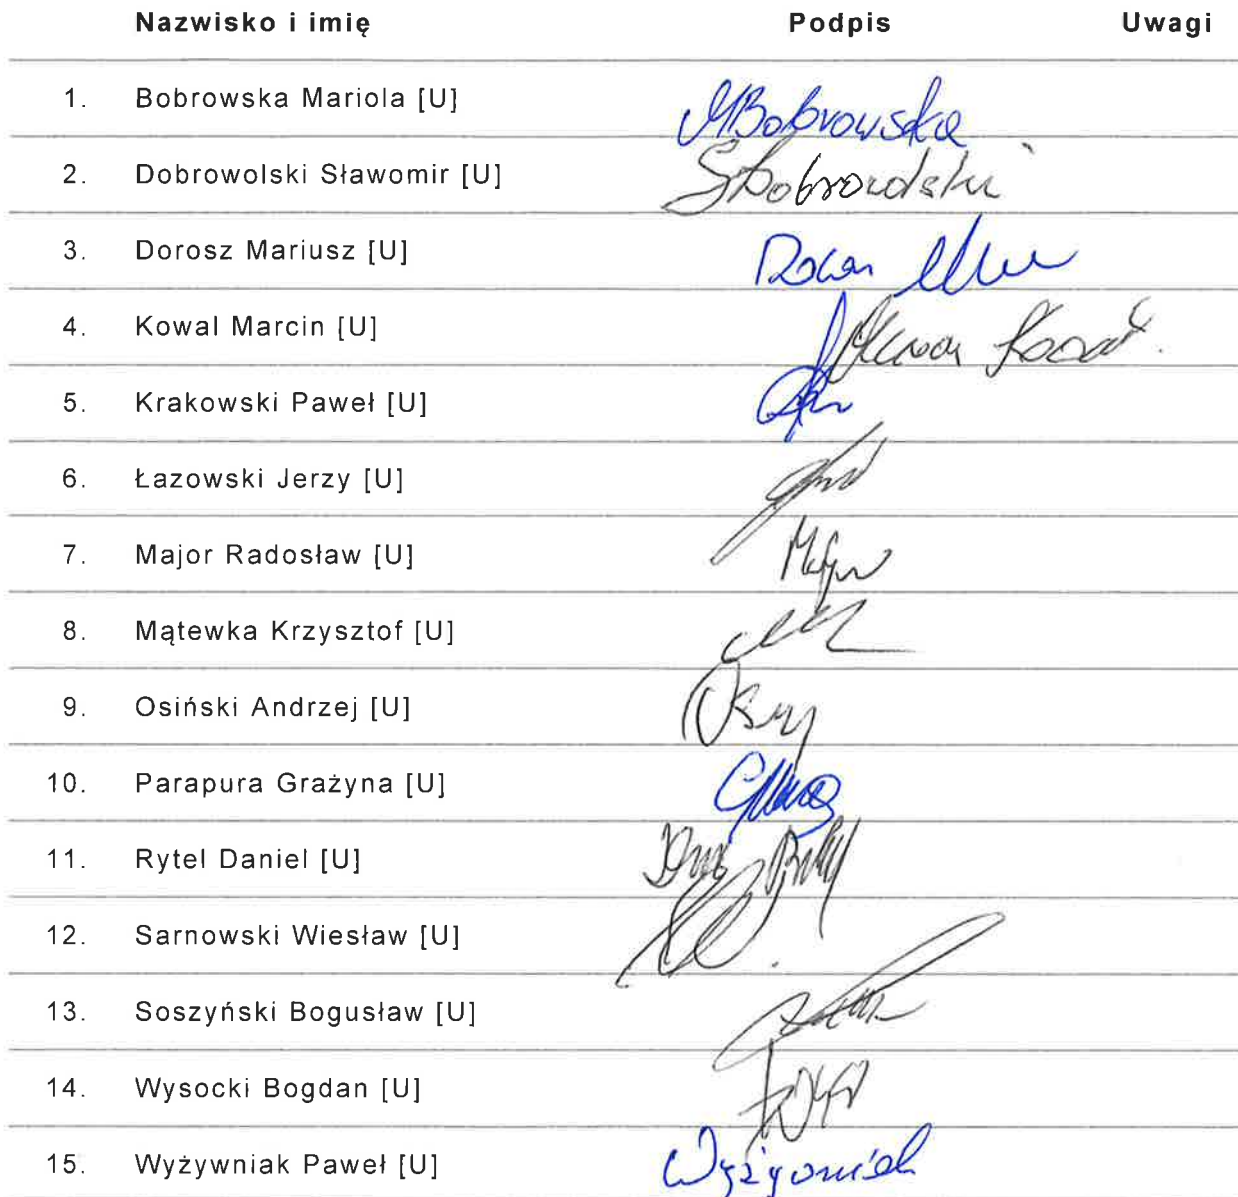 Nazwisko i imię Podpis Uwagi
1. Bobrowska Mariola [U] MBobrowska
2. Dobrowolski Sławomir [U] SDobrowolski
3. Dorosz Mariusz [U]
4. Kowal Marcin [U]
5. Krakowski Paweł [U]
6. Łazowski Jerzy [U]
7. Major Radosław [U]
8. Mątewka Krzysztof [U]
9. Osiński Andrzej [U]
10. Parapura Grażyna [U]
11. Rytel Daniel [U]
12. Sarnowski Wiesław [U]
13. Soszyński Bogusław [U]
14. Wysocki Bogdan [U]
15. Wyżywniak Paweł [U] Wyżywniak